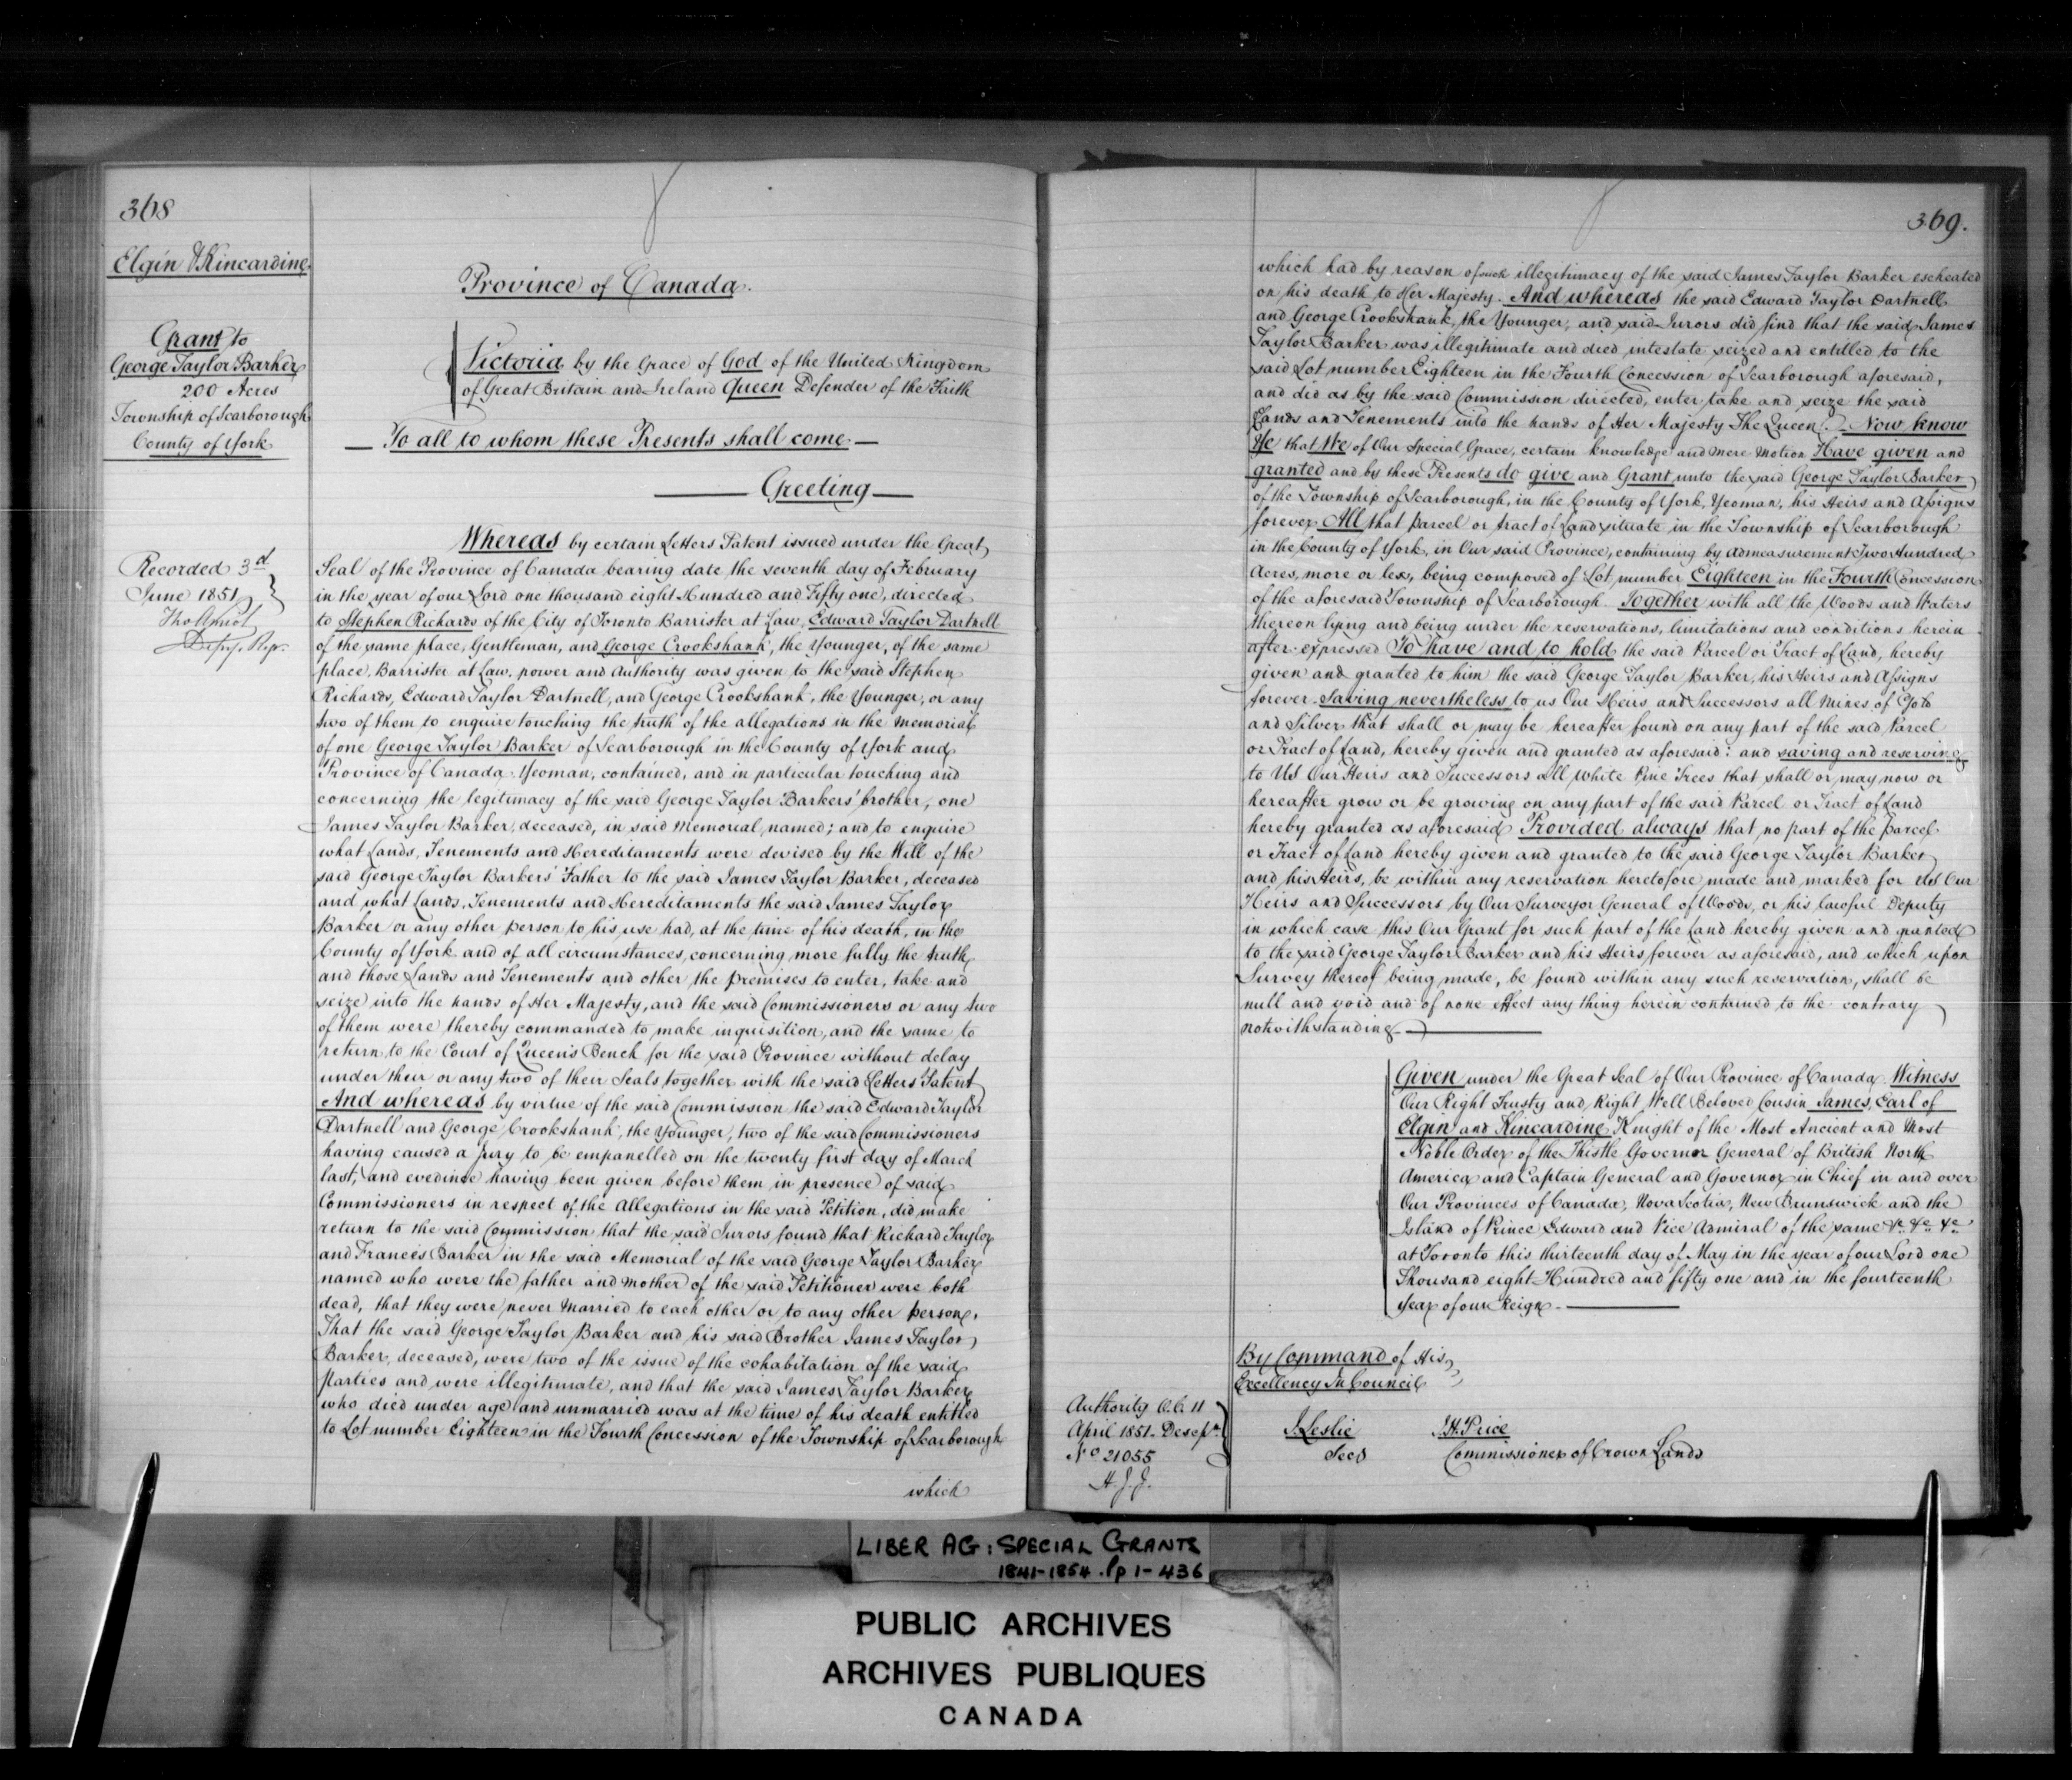 368
Elgin & Kincardine
Grant to
George Taylor Barker
200 Acres
Township of Scarborough
County of York
Recorded 3d
June 1851
Tho Amiot
Depy. Regr.
Province of Canada.
Victoria by the Grace of God of the United Kingdom
of Great Britain and Ireland Queen Defender of the Faith
To all to whom these Presents shall come
Greeting
Whereas by certain Letters Patent issued under the Great
Seal of the Province of Canada bearing date the seventh day of February
in the year of our Lord one thousand eight Hundred and Fifty one, directed
to Stephen Richards of the City of Toronto Barrister at Law, Edward Taylor Dartnell
of the same place, Gentleman, and George Crookshank, the Younger, of the same
place, Barrister at Law, power and Authority was given to the said Stephen
Richards, Edward Taylor Dartnell, and George Crookshank, the Younger, or any
two of them to enquire touching the truth of the allegations in the Memorial
of one George Taylor Barker of Scarborough in the County of York and
Province of Canada Yeoman, contained, and in particular touching and
concerning the legitimacy of the said George Taylor Barkers' brother, one
James Taylor Barker, deceased, in said Memorial named; and to enquire
what Lands, Tenements and Hereditaments were devised by the Will of the
said George Taylor Barkers' Father to the said James Taylor Barker, deceased
and what Lands, Tenements and Hereditaments the said James Taylor
Barker or any other person to his use had, at the time of his death, in the
County of York and of all circumstances, concerning more fully the truth
and those Lands and Tenements and other the premises to enter, take and
seize into the hands of Her Majesty, and the said Commissioners or any two
of them were thereby commanded to make inquisition, and the same to
return to the Court of Queen's Bench for the said Province without delay
under their or any two of their Seals together with the said Letters Patent
And whereas by virtue of the said Commission the said Edward Taylor
Dartnell and George Crookshank, the Younger, two of the said Commissioners
having caused a Jury to be empanelled on the twenty first day of March
last, and evedince having been given before them in presence of said
Commissioners in respect of the Allegations in the said Petition, did make
return to the said Commission that the said Jurors found that Richard Taylor
and Frances Barker in the said Memorial of the said George Taylor Barker
named who were the father and mother of the said Petitioner were both
dead, that they were never Married to each other or to any other person,
That the said George Taylor Barker and his said Brother James Taylor
Barker, deceased, were two of the issue of the cohabitation of the said
parties and were illegitimate, and that the said James Taylor Barker
who died under age and unmarried was at the time of his death entitled
to Lot number Eighteen in the Fourth Concession of the Township of Scarborough
which
369.
which had by reason of such illegitimacy of the said James Taylor Barker escheated
on his death to Her Majesty. And whereas the said Edward Taylor Dartnell
and George Crookshank, the Younger, and said Jurors did find that the said James
Taylor Barker was illegitimate and died intestate seized and entitled to the
said Lot number Eighteen in the Fourth Concession of Scarborough aforesaid,
and did as by the said Commission directed, enter take and seize the said
Lands and Tenements into the hands of Her Majesty The Queen. Now know
Ye that We of Our Special Grace, certain knowledge and mere Motion Have given and
granted and by these Presents do give and Grant unto the said George Taylor Barker
of the Township of Scarborough, in the County of York, Yeoman, his Heirs and Assigns
forever All that parcel or tract of Land situate in the Township of Scarborough
in the County of York, in Our said Province, containing by admeasurement Two Hundred
Acres, more or less, being composed of Lot number Eighteen in the Fourth Concession
of the aforesaid Township of Scarborough. Together with all the Woods and Waters
thereon lying and being under the reservations, limitations and conditions herein
after expressed To have and to hold the said Parcel or Tract of Land, hereby
given and granted to him the said George Taylor Barker, his Heirs and Assigns
forever. Saving nevertheless to us Our Heirs and Successors all Mines of Gold
and Silver that shall or may be hereafter found on any part of the said Parcel
or Tract of Land, hereby given and granted as aforesaid: and saving and reserving
to US Our Heirs and Successors all White Pine Trees that shall or may now or
hereafter grow or be growing on any part of the said Parcel or Tract of Land
hereby granted as aforesaid Provided always that no part of the parcel
or Tract of Land hereby given and granted to the said George Taylor Barker
and his Heirs, be within any reservation heretofore made and marked for US Our
Heirs and Successors by Our Surveyor General of Woods, or his lawful Deputy
in which case this Our Grant for such part of the Land hereby given and granted
to the said George Taylor Barker and his Heirs forever as aforesaid, and which upon
Survey thereof being made, be found within any such reservation, shall be
null and void and of none effect any thing herein contained to the contrary
notwithstanding.
Given under the Great Seal of Our Province of Canada. Witness
Our Right Trusty and Right Well Beloved Cousin James, Earl of
Elgin and Kincardine Knight of the Most Ancient and Most
Noble Order of the Thistle Governor General of British North
America and Captain General and Governor in Chief in and over
Our Provinces of Canada, Nova Scotia, New Brunswick and the
Island of Prince Edward and Vice Admiral of the same &c &c &c
at Toronto this thirteenth day of May in the year of our Lord one
Thousand eight Hundred and fifty one and in the fourteenth
year of our Reign.
By Command of His
Excellency In Council
Authority O.C. 11
April 1851. Descpn
No 21055
H.J.J.
J. Leslie
Secy
J.H. Price
Commissioner of Crown Lands
LIBER AG: SPECIAL GRANTS
1841-1854. Pp 1-436
PUBLIC ARCHIVES
ARCHIVES PUBLIQUES
CANADA